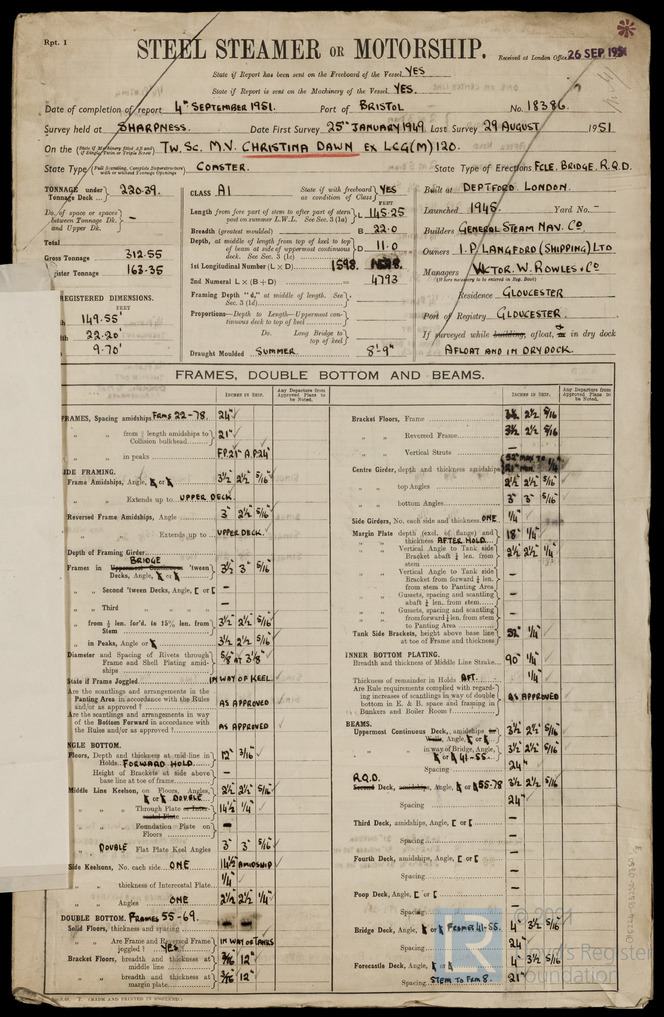 Rpt. 1
STEEL STEAMER OR MOTORSHIP.
Received at London Office 26 SEP 1951
State if Report has been sent on the Freeboard of the Vessel YES
State if Report is sent on the Machinery of the Vessel YES.
Date of completion of report 4TH SEPTEMBER 1951. Port of BRISTOL No. 18386.
Survey held at SHARPNESS. Date First Survey 25TH JANUARY 1949 Last Survey 29 AUGUST 1951
On the TW. SC. M.V. CHRISTINA DAWN EX LCG(M) 120.
State Type COASTER. State Type of Erections FCLE, BRIDGE, R.Q.D.
TONNAGE under Tonnage Deck 220.39.
Do. of space or spaces between Tonnage Dk. and Upper Dk. -
Total
Gross Tonnage 312.55
gister Tonnage 163.35
REGISTERED DIMENSIONS.
FEET
149.55'
22.20'
9.70'
CLASS A1 State if with freeboard as condition of Class YES
Length from fore part of stem to after part of stern post on summer L.W.L. See Sec. 3 (1a) L 145.25
Breadth (greatest moulded) B 22.0
Depth, at middle of length from top of keel to top of beam at side of uppermost continuous deck. See Sec. 3 (1c) D 11.0
1st Longitudinal Number (L × D) 1598.
2nd Numeral L × (B + D) 4793
Framing Depth "d," at middle of length. See Sec. 3 (1d)
Proportions—Depth to Length—Uppermost continuous deck to top of keel
Do. Long Bridge to top of keel
Draught Moulded SUMMER 8'-9"
Built at DEPTFORD. LONDON.
Launched 1945. Yard No. -
Builders GENERAL STEAM NAV. CO.
Owners I. P. LANGFORD (SHIPPING) LTD
Managers VICTOR. W. ROWLES & CO
Residence GLOUCESTER
Port of Registry GLOUCESTER.
If surveyed while building, afloat, or in dry dock
AFLOAT AND IN DRYDOCK.
FRAMES, DOUBLE BOTTOM AND BEAMS.
INCHES IN SHIP. Any Departure from Approved Plans to be Noted.
FRAMES, Spacing amidships FRMS 22-78. 24"
" " from ⅕ length amidships to Collision bulkhead 21"
" " in peaks F.P. 21" A.P. 24"
SIDE FRAMING.
Frame Amidships, Angle 3½" 2½" 5/16"
" " Extends up to UPPER DECK
Reversed Frame Amidships, Angle 3" 2½" 5/16"
" " Extends up to UPPER DECK.
Depth of Framing Girder
Frames in BRIDGE 'tween Decks, Angle 3½" 3" 5/16"
" Second 'tween Decks, Angle -
" Third " " " -
" from ⅕ len. for'd. to 15% len. from Stem 3½" 2½" 5/16"
" in Peaks, Angle or 3½" 2½" 5/16"
Diameter and Spacing of Rivets through Frame and Shell Plating amidships 5/8" AT 3⅛"
State if Frame Joggled IN WAY OF KEEL
Are the scantlings and arrangements in the Panting Area in accordance with the Rules and/or as approved ? AS APPROVED
Are the scantlings and arrangements in way of the Bottom Forward in accordance with the Rules and/or as approved ? AS APPROVED
NGLE BOTTOM.
Floors, Depth and thickness at mid-line in Holds FORWARD HOLD 12" 3/16"
Height of Brackets at side above base line at toe of frame -
Middle Line Keelson, on Floors, Angles, DOUBLE 2½" 2½" 5/16"
" " Through Plate 14½" ¼"
" " Foundation Plate on Floors -
" DOUBLE Flat Plate Keel Angles 3" 3" 5/16"
Side Keelsons, No. each side ONE 14½" AMIDSHIP
" " thickness of Intercostal Plate ¼"
" " Angles ONE 2½" 2½" ¼"
DOUBLE BOTTOM. FRAMES 55-69.
Solid Floors, thickness and spacing
" " Are Frame and Reversed Frame joggled ? YES IN WAY OF TANKS
Bracket Floors, breadth and thickness at middle line 3/16 12"
" " breadth and thickness at margin plate 3/16 12"
INCHES IN SHIP. Any Departure from Approved Plans to be Noted.
Bracket Floors, Frame 3½ 2½ 5/16
" " Reversed Frame 3½ 2½ 5/16
" " Vertical Struts -
Centre Girder, depth and thickness amidships
" " top Angles 2½" 2½" 5/16"
" " bottom Angles 3" 3" 5/16
Side Girders, No. each side and thickness ONE ¼"
Margin Plate depth (excl. of flange) and thickness AFTER HOLD 18" ¼"
" " Vertical Angle to Tank side Bracket abaft ¼ len. from stem 2½" 2½" ¼"
" " Vertical Angle to Tank side Bracket from forward ¼ len. from stem to Panting Area -
" " Gussets, spacing and scantling abaft ¼ len. from stem -
" " Gussets, spacing and scantling from forward ¼ len. from stem to Panting Area -
Tank Side Brackets, height above base line at toe of Frame and thickness 32" ¼"
INNER BOTTOM PLATING.
Breadth and thickness of Middle Line Strake 90" ¼"
Thickness of remainder in Holds AFT. ¼"
Are Rule requirements complied with regarding increases of scantlings in way of double bottom in E. & B. space and framing in Bunkers and Boiler Room ? AS APPROVED
BEAMS.
Uppermost Continuous Deck, amidships 3½" 2½" 5/16
" " in way of Bridge, Angle, 41-55. 3½" 2½" 5/16
Spacing 24"
R.Q.D.
Second Deck, amidships, Angle, 55-78 3½" 2½" 5/16
Spacing 24"
Third Deck, amidships, Angle, -
Spacing -
Fourth Deck, amidships, Angle, -
Spacing -
Poop Deck, Angle, -
Spacing
Bridge Deck, Angle, FRAMES 41-55. 4" 3½" 5/16
Spacing 24"
Forecastle Deck, Angle, 4" 3½" 5/16
Spacing STEM TO FRM 8. 21"
© 2021
Lloyd's Register
Foundation
LR